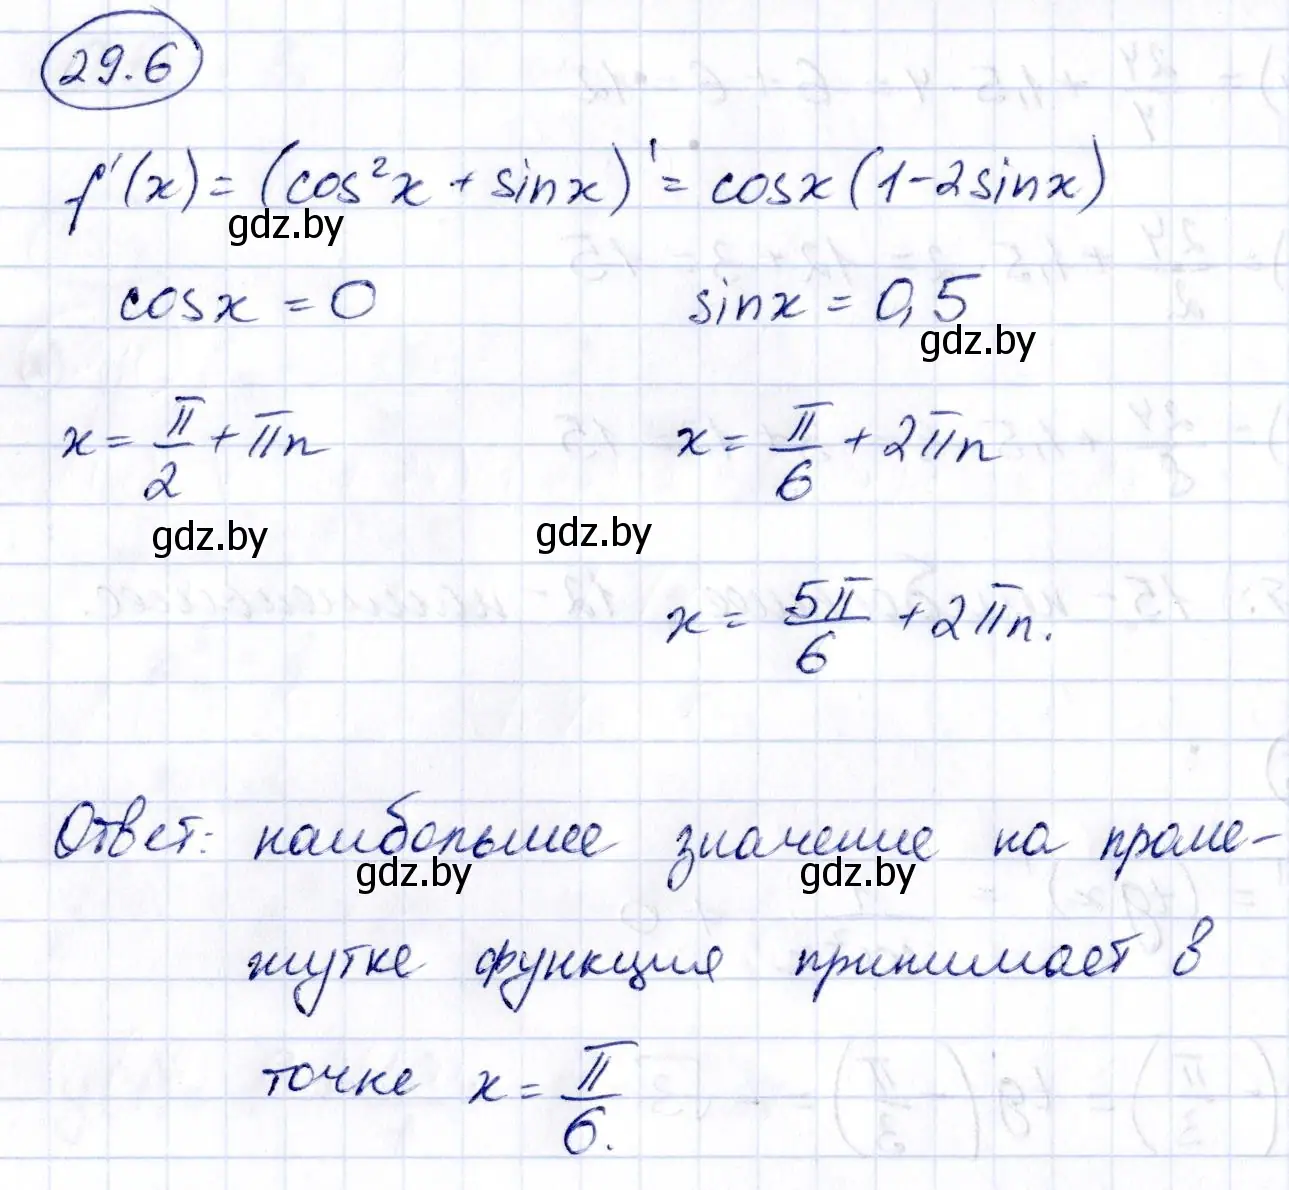 29.6
f'(x) = (cos²x + sinx)' = cosx(1-2sinx)
gdz.by
cosx = 0 sinx = 0,5
gdz.by
x = π/2 + πn x = π/6 + 2πn
gdz.by gdz.by
x = 5π/6 + 2πn.
Ответ: наибольшее значение на проме-
gdz.by gdz.by
жутке функция принимает в
точке x = π/6.